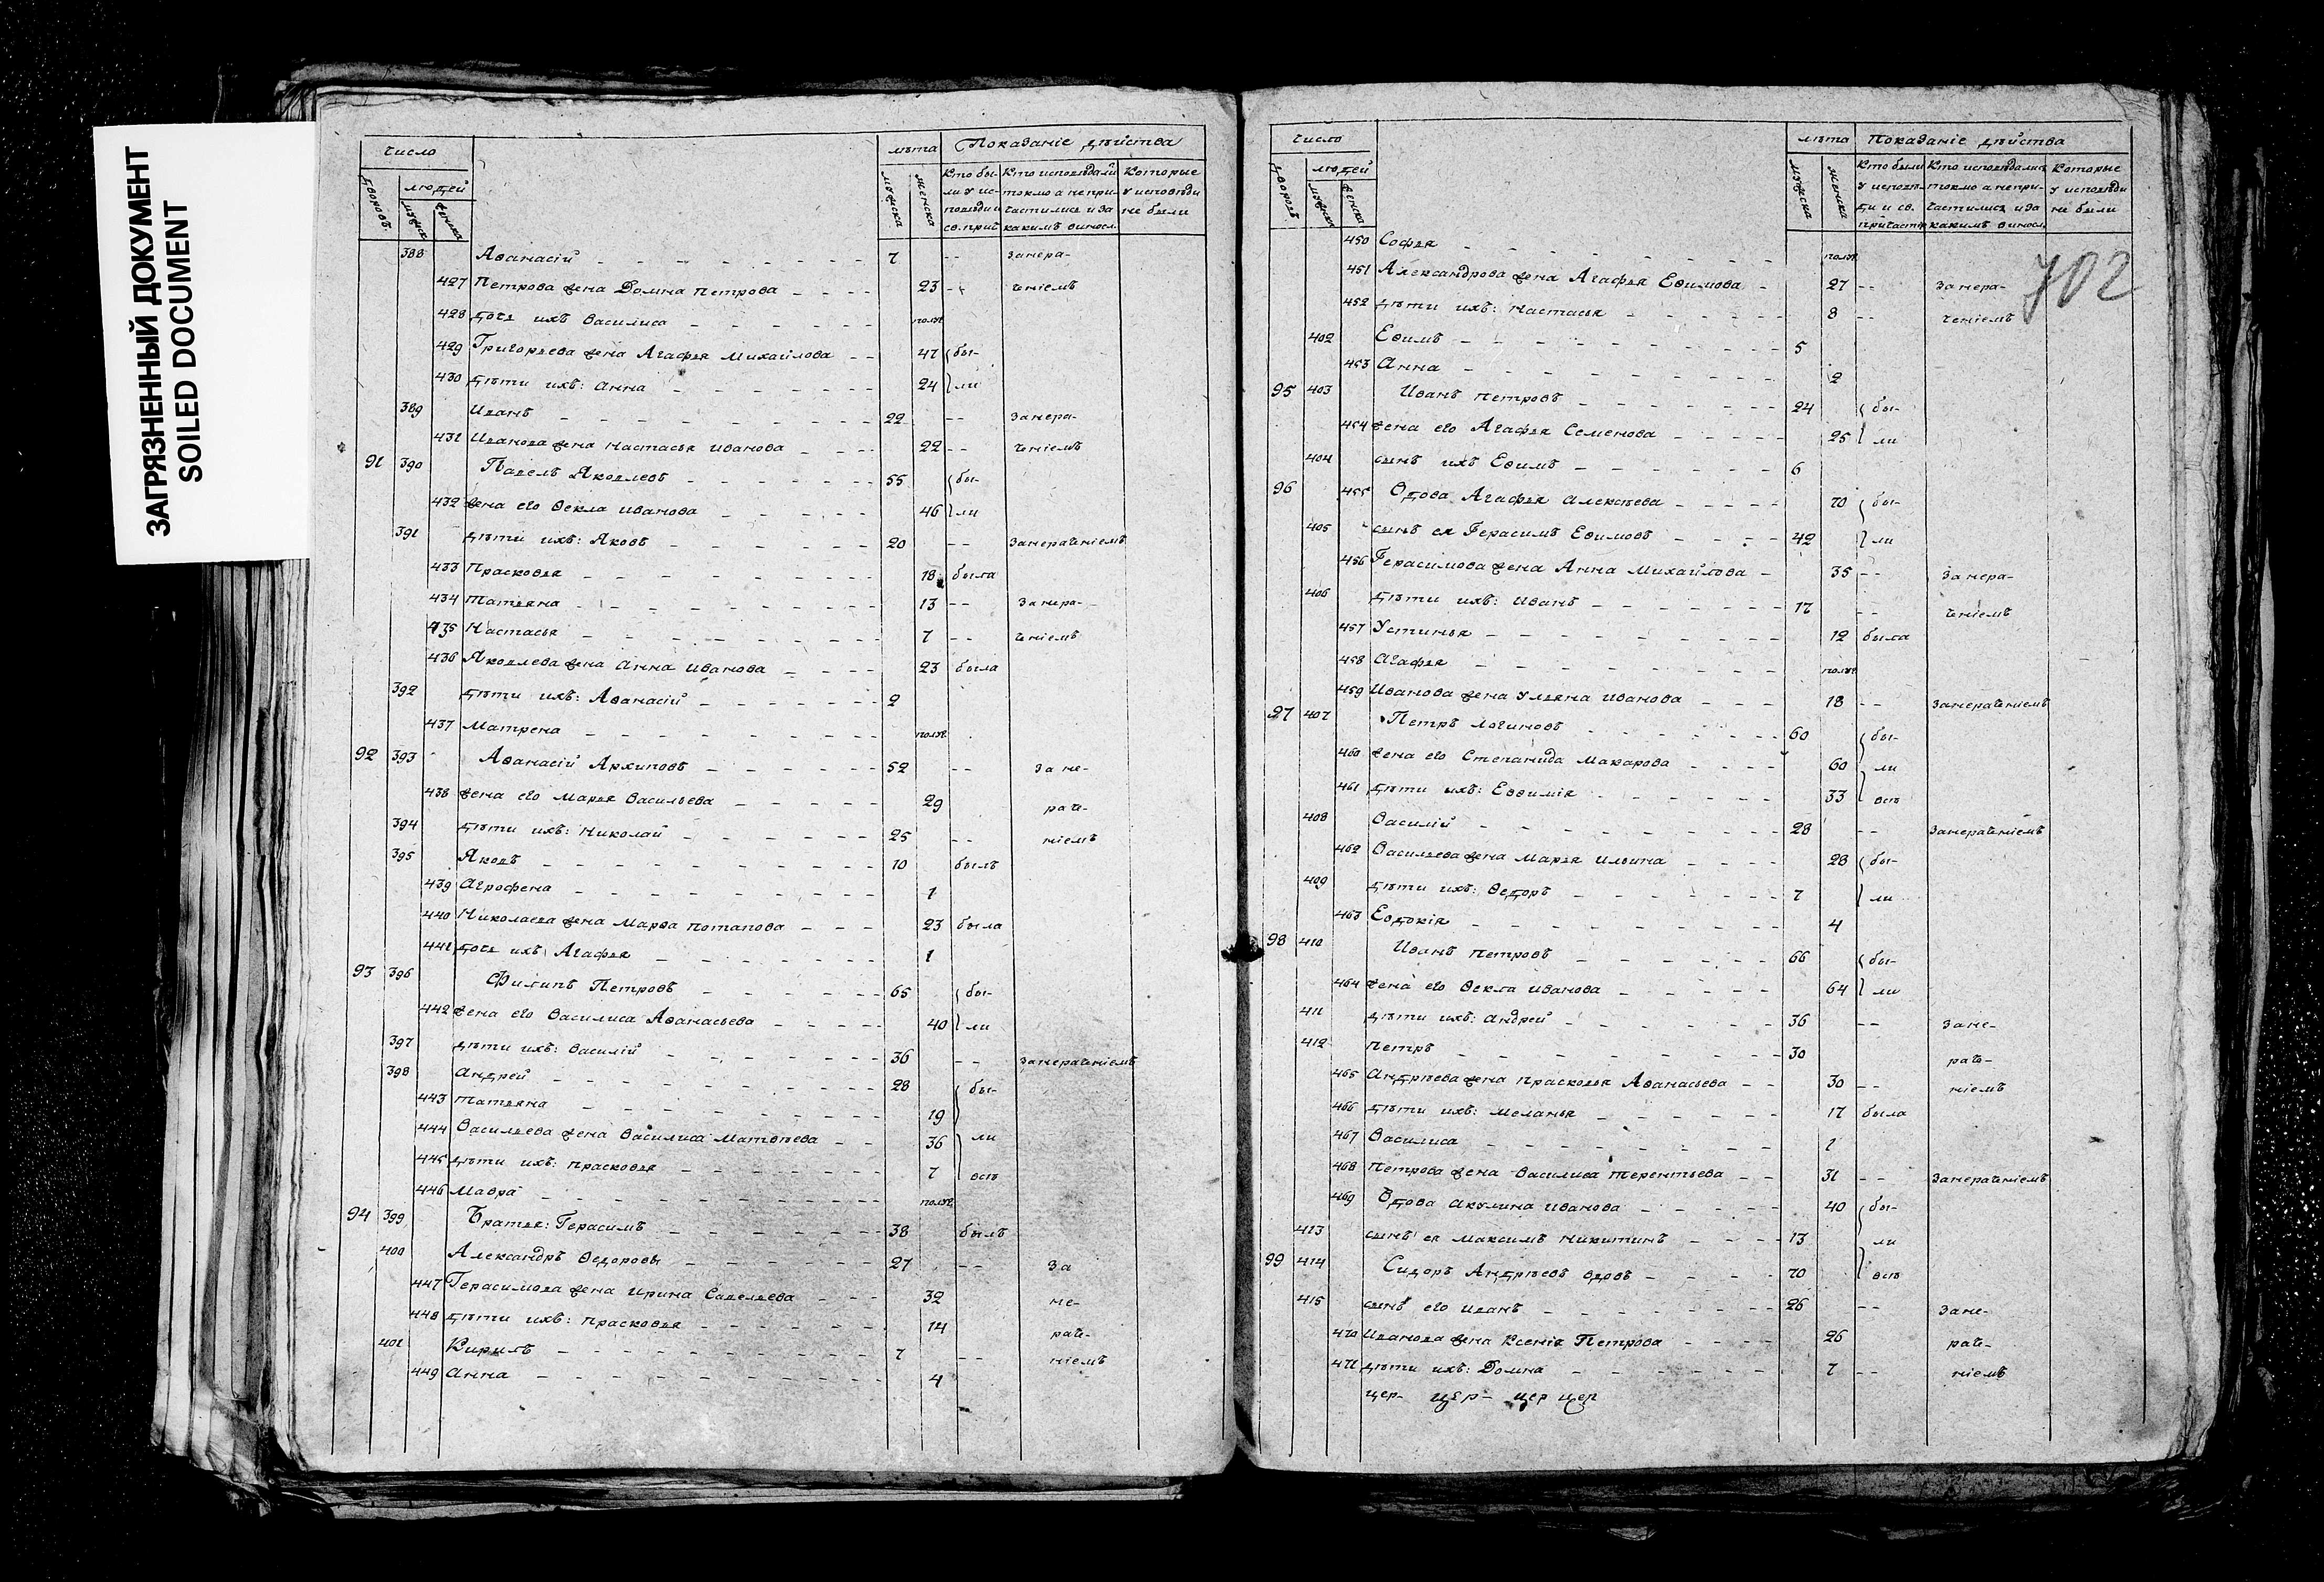 ЗАГРЯЗНЕННЫЙ ДОКУМЕНТ
SOILED DOCUMENT
число лѣта Показанiе дѣйства
дворовъ людей мужска женска Кто бы- Кто исповѣдали Которые
мужска женска ли у ис- токмо а непри- у исповѣди
повѣди и частились и за не были
св. прич какимъ винос.
388 Аѳанасiй 7 -- занера-
427 Петрова жена Домна Петрова 23 -- ченiемъ
428 дочь ихъ Василиса полг
429 Григорьева жена Агафья Михайлова 47 бы-
430 дѣти ихъ: Анна 24 ли
389 Иванъ 22 -- занера-
431 Иванова жена Настасья Иванова 22 -- ченiемъ
91 390 Павелъ Яковлевъ 55 бы-
432 жена его Ѳекла Иванова 46 ли
391 дѣти ихъ: Яковъ 20 -- занераченiемъ
433 Прасковья 18 была
434 Татьяна 13 -- занера-
435 Настасья 7 -- ченiемъ
436 Яковлева жена Анна Иванова 23 была
392 дѣти ихъ: Аѳанасiй 2
437 Матрена полг
92 393 Аѳанасiй Архиповъ 52 -- за не-
438 жена его Марья Васильева 29 раче-
394 дѣти ихъ: Николай 25 -- нiемъ
395 Яковъ 10 былъ
439 Агрофена 1
440 Николаева жена Марѳа Потапова 23 была
441 дочь ихъ Агафья 1
93 396 Филипъ Петровъ 65 бы-
442 жена его Василиса Аѳанасьева 40 ли
397 дѣти ихъ: Василiй 36 -- занераченiемъ
398 Андрей 28 бы-
443 Татьяна 19
444 Васильева жена Василиса Матвѣева 36 ли
445 дѣти ихъ: Прасковья 7 всѣ
446 Мавра полг
94 399 Братья: Герасимъ 38 былъ
400 Александръ Ѳедоровы 27 -- за
447 Герасимова жена Ирина Савельева 32 не-
448 дѣти ихъ: Прасковья 14 раче-
401 Кирилъ 7 -- нiемъ
449 Анна 4
число лѣта Показанiе дѣйства
дворовъ людей мужска женска Кто были Кто исповѣдались Которые
мужска женска у исповѣ- токмо а непри- у исповѣди
ди и св. частились и за не были
причаст какимъ винос.
702
450 Софья полг
451 Александрова жена Агафья Ефимова 27 -- занера-
452 дѣти ихъ: Настасья 8 -- ченiемъ
402 Ефимъ 5
453 Анна 2
95 403 Иванъ Петровъ 24 бы-
454 жена его Агафья Семенова 25 ли
404 сынъ ихъ Ефимъ 6
96 455 Вдова Агафья Алексѣева 70 бы-
405 сынъ ея Герасимъ Ефимовъ 42 ли
456 Герасимова жена Анна Михайлова 35 -- занера-
406 дѣти ихъ: Иванъ 17 -- ченiемъ
457 Устинья 12 была
458 Агафья полг
459 Иванова жена Ульяна Иванова 18 -- занераченiемъ
97 407 Петръ Логиновъ 60 бы-
460 жена его Степанида Макарова 60 ли
461 дѣти ихъ: Евѳимiя 33 всѣ
408 Василiй 28 -- занераченiемъ
462 Васильева жена Марья Ильина 28 бы-
409 дѣти ихъ: Ѳедоръ 7 ли
463 Евдокiя 4
98 410 Иванъ Петровъ 66 бы-
464 жена его Ѳекла Иванова 64 ли
411 дѣти ихъ: Андрей 36 -- зане-
412 Петръ 30 раче-
465 Андрѣева жена Прасковья Аѳанасьева 30 -- нiемъ
466 дѣти ихъ: Меланья 17 была
467 Василиса 1
468 Петрова жена Василиса Терентьева 31 -- занераченiемъ
469 Вдова Акулина Иванова 40 бы-
413 сынъ ея Максимъ Никитинъ 13 ли
99 414 Сидоръ Андрѣевъ вдовъ 70 всѣ
415 сынъ его Иванъ 26 -- зане-
470 Иванова жена Ксенiя Петрова 26 раче-
471 дѣти ихъ: Домна 7 -- нiемъ
цер- цер- цер цер